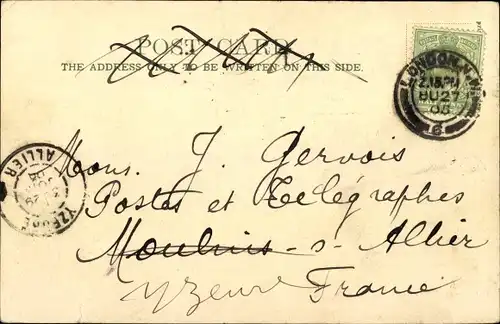 POST CARD
THE ADDRESS ONLY TO BE WRITTEN ON THIS SIDE.
LONDON.N.W
12.15.PM
AU27
06
16
HALF
YZEURE
ALLIER
Mons. J. Gervois
Postes et Telégraphes
Moulins -s- Allier
Yzeure France